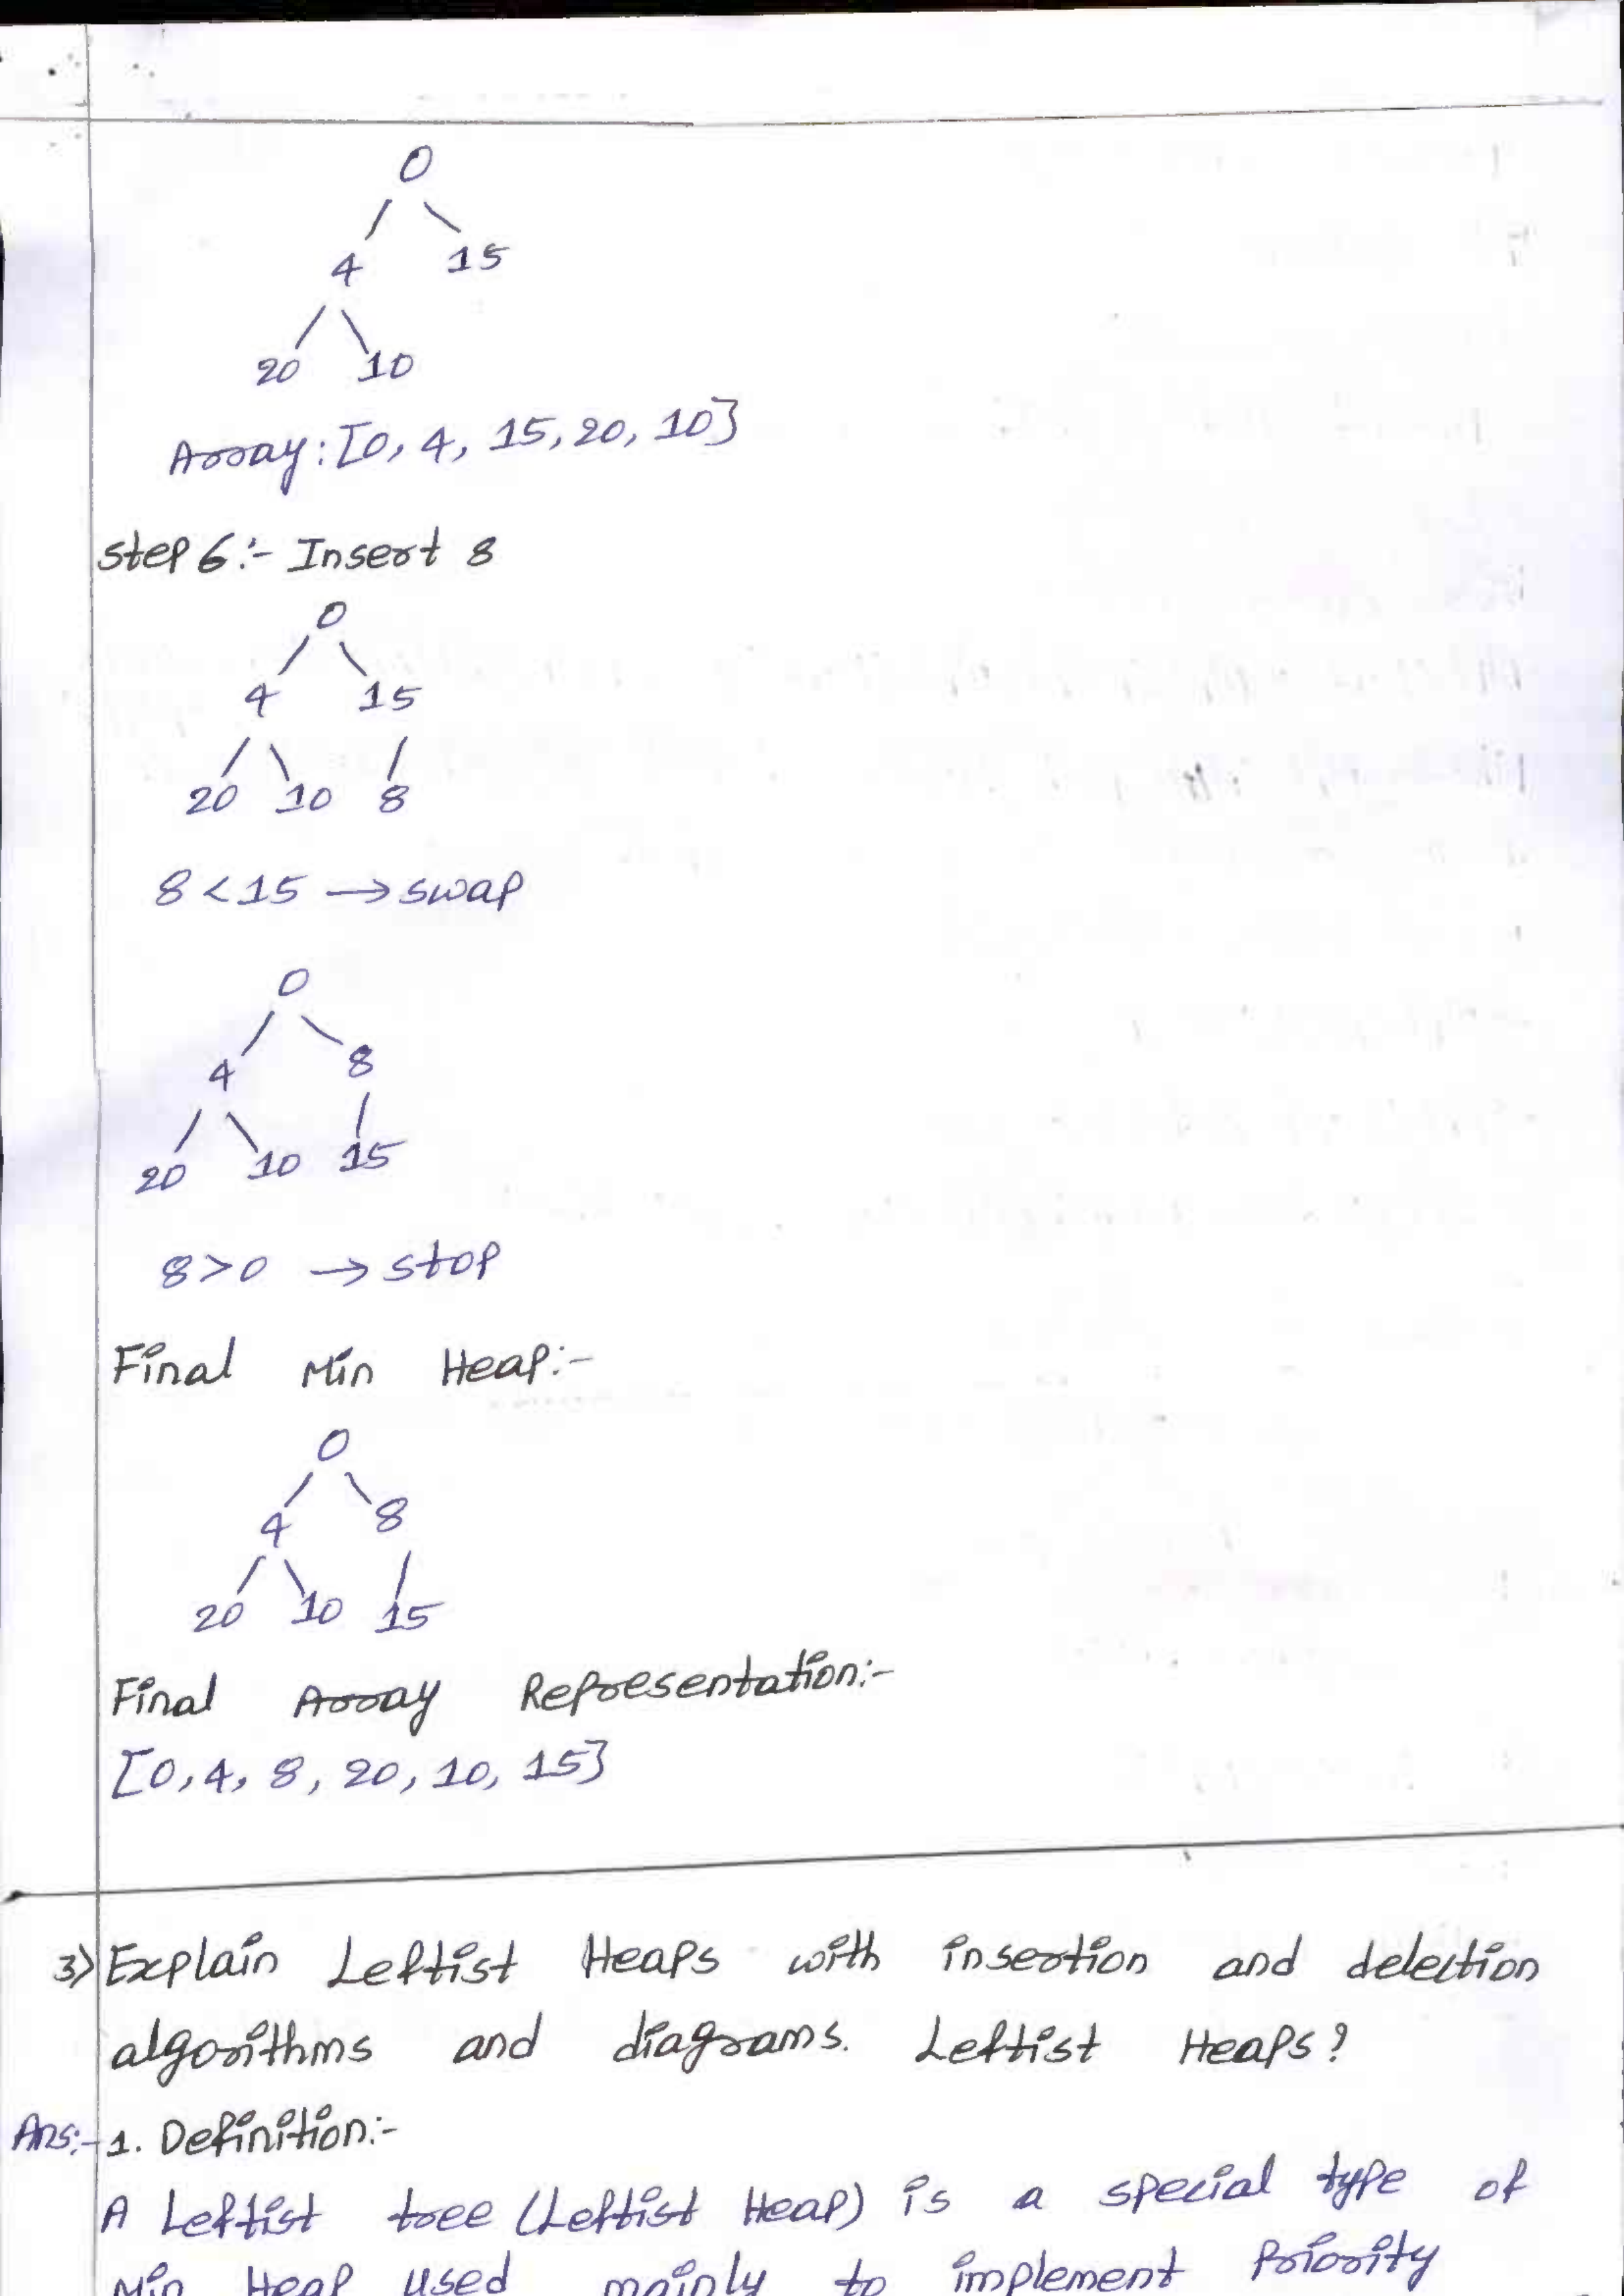 0
4 15
20 10
Array:[0, 4, 15, 20, 10]
step 6:- Insert 8
0
4 15
20 10 8
8 < 15 → swap
0
4 8
20 10 15
8 > 0 → stop
Final Min Heap:-
0
4 8
20 10 15
Final Array Representation:-
[0, 4, 8, 20, 10, 15]
3) Explain Leftist Heaps with insertion and delection
algorithms and diagrams. Leftist Heaps?
Ans:- 1. Definition:-
A Leftist tree (Leftist Heap) is a special type of
Min Heap used mainly to implement Priority